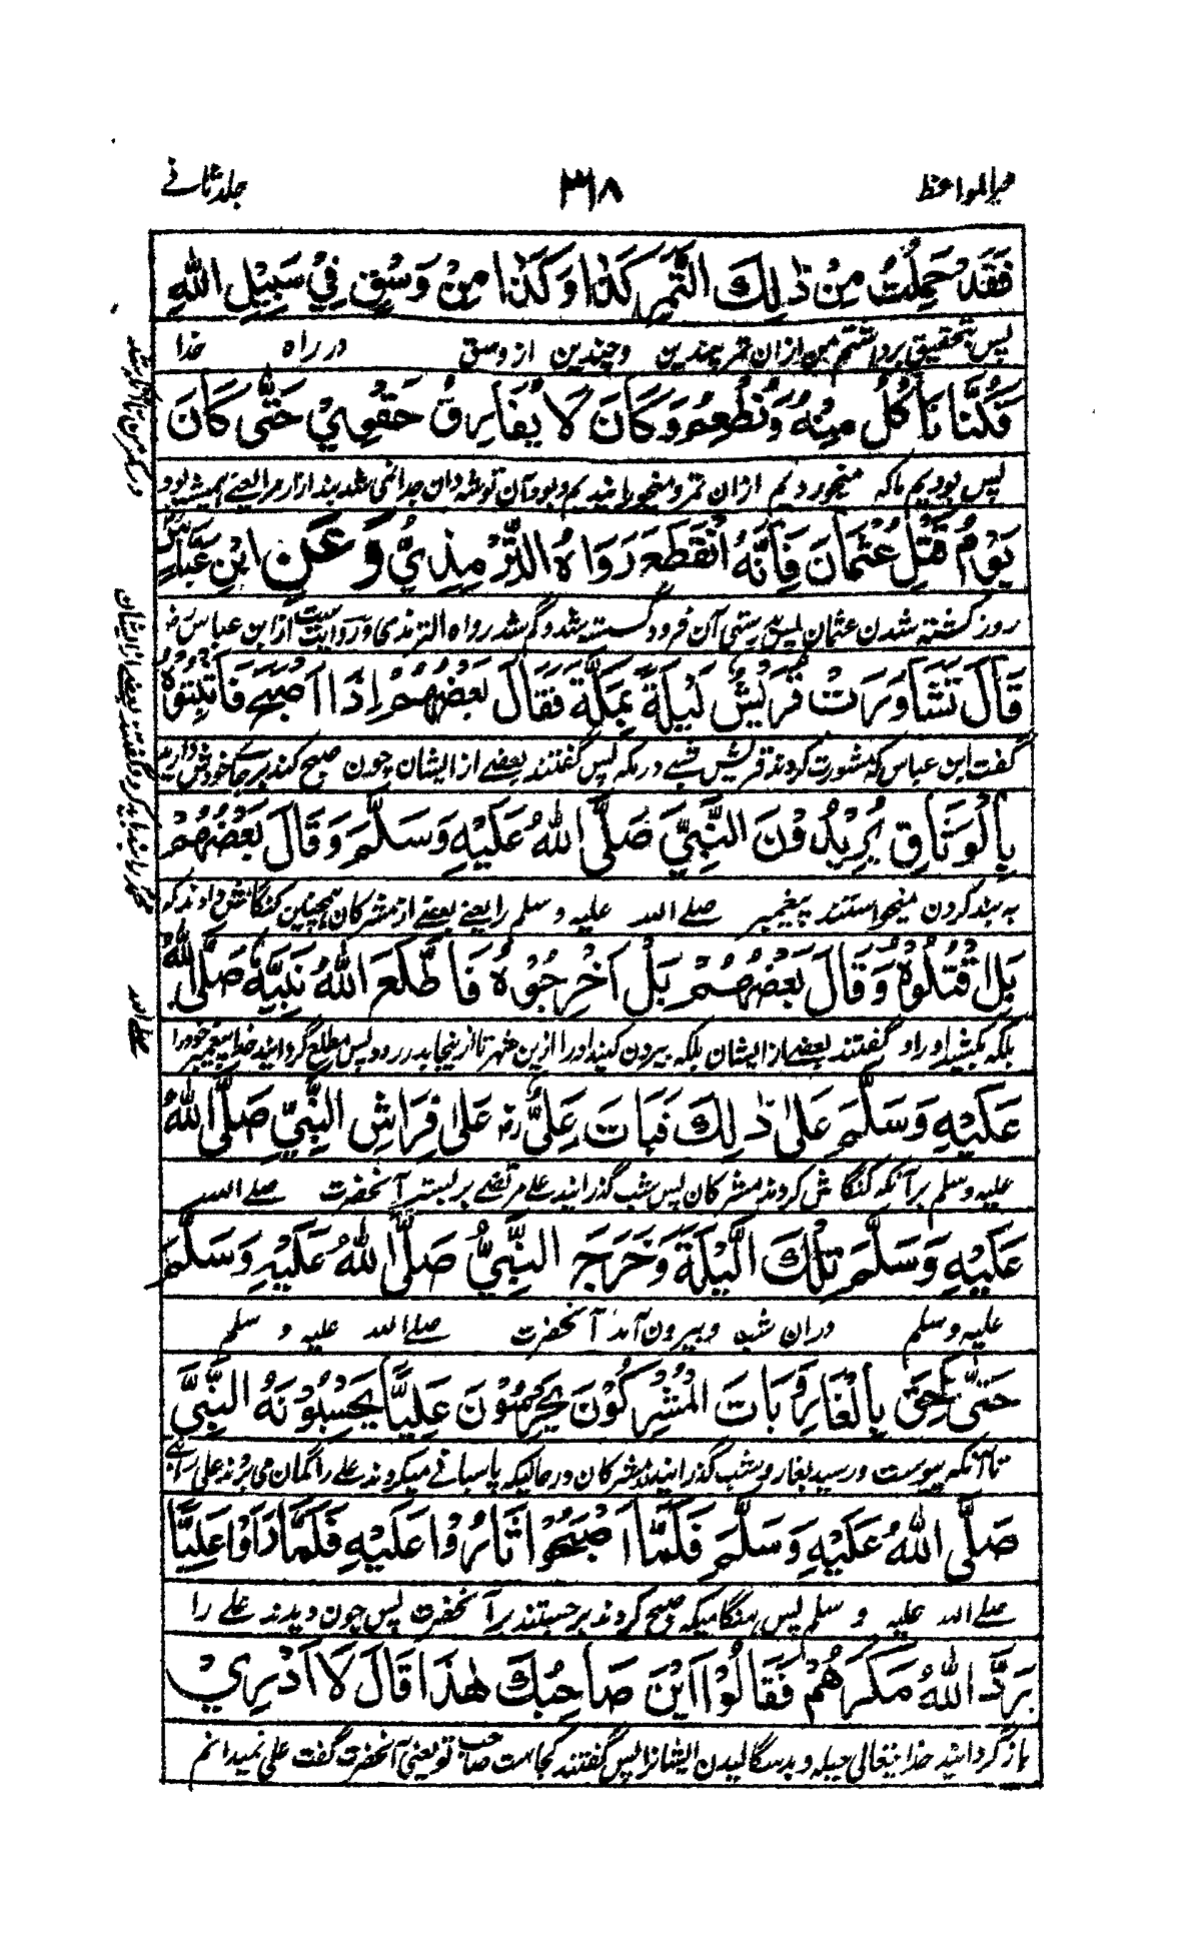 خیرالمواعظ ۳۱۸ جلد ثانے
فَقَدْ حَمَلْتُ مِنْ ذٰلِكَ التَّمْرِ كَذَا وَكَذَا مِنْ وَسْقٍ فِيْ سَبِيْلِ اللّٰهِ
پس بتحقیق برداشتم من ازان تمر چندین وچندین از وسق در راه خدا
فَكُنَّا نَأْكُلُ مِنْهُ وَنُطْعِمُ وَكَانَ لَا يُفَارِقُ حَقْوِيْ حَتّٰى كَانَ
پس بودیم ماکه میخوردیم ازان تمر و میخورانیدیم وبود آن توشه دان جدا نمی شد ازار مرا یعنے همیشه بود
يَوْمُ قَتْلِ عُثْمَانَ فَاِنَّهُ انْقَطَعَ رَوَاهُ التِّرْمِذِيُّ وَعَنِ ابْنِ عَبَّاسٍ
روز کشته شدن عثمان پس بدرستی آن فرود گسسته شد و گم شد رواه الترمذی وروایت ست از ابن عباس رض
قَالَ تَشَاوَرَتْ قُرَيْشٌ لَيْلَةً بِمَكَّةَ فَقَالَ بَعْضُهُمْ اِذَا اَصْبَحَ فَاَثْبِتُوْهُ
گفت ابن عباس که مشورت کردند قریش شبے در مکه پس گفتند بعضے از ایشان چون صبح کند
بِالْوَثَاقِ يُرِيْدُوْنَ النَّبِيَّ صَلَّى اللّٰهُ عَلَيْهِ وَسَلَّمَ وَقَالَ بَعْضُهُمْ
به بند کردن میخواستند پیغمبر صلے الله علیه و سلم را یعنے بعضے از مشرکان همچنین کنگاش دادند که
بَلِ اقْتُلُوْهُ وَقَالَ بَعْضُهُمْ بَلْ اَخْرِجُوْهُ فَاَطْلَعَ اللّٰهُ نَبِيَّهُ صَلَّى اللّٰهُ
بلکه بکشید او را و گفتند بعضے از ایشان بلکه بیرون کنید او را ازین شهر تا از ینجا بدر رود پس مطلع گردانید خدا پیغمبر خود را
عَلَيْهِ وَسَلَّمَ عَلٰى ذٰلِكَ فَبَاتَ عَلِيٌّ رض عَلٰى فِرَاشِ النَّبِيِّ صَلَّى اللّٰهُ
علیه وسلم برآنکه کنگاش کردند مشرکان پس شب گذرانید علے مرتضے بر بستر آنحضرت صلے الله
عَلَيْهِ وَسَلَّمَ تِلْكَ الَّيْلَةَ وَخَرَجَ النَّبِيُّ صَلَّى اللّٰهُ عَلَيْهِ وَسَلَّمَ
علیه وسلم دران شب وبیرون آمد آنحضرت صلے الله علیه و سلم
حَتّٰى لَحِقَ بِالْغَارِ وَبَاتَ الْمُشْرِكُوْنَ يَحْرُسُوْنَ عَلِيًّا يَحْسَبُوْنَهُ النَّبِيَّ
تا آنکه پیوست ورسید بغار و شب گذرانیدند مشرکان در حالیکه پاسبانے میکردند علے را گمان می بردند علی را نبے
صَلَّى اللّٰهُ عَلَيْهِ وَسَلَّمَ فَلَمَّا اَصْبَحُوْا ثَارُوْا عَلَيْهِ فَلَمَّا رَاَوْا عَلِيًّا
صلے الله علیه و سلم پس هنگامیکه صبح کردند برجستند بر آنحضرت پس چون دیدند علے را
رَدَّ اللّٰهُ مَكْرَهُمْ فَقَالُوْا اَيْنَ صَاحِبُكَ هٰذَا قَالَ لَا اَدْرِيْ
باز گردانید خدا یتعالی حیله و بدسگالیدن ایشانرا پس گفتند کجاست صاحب تو یعنی آنحضرت گفت علی نمیدانم